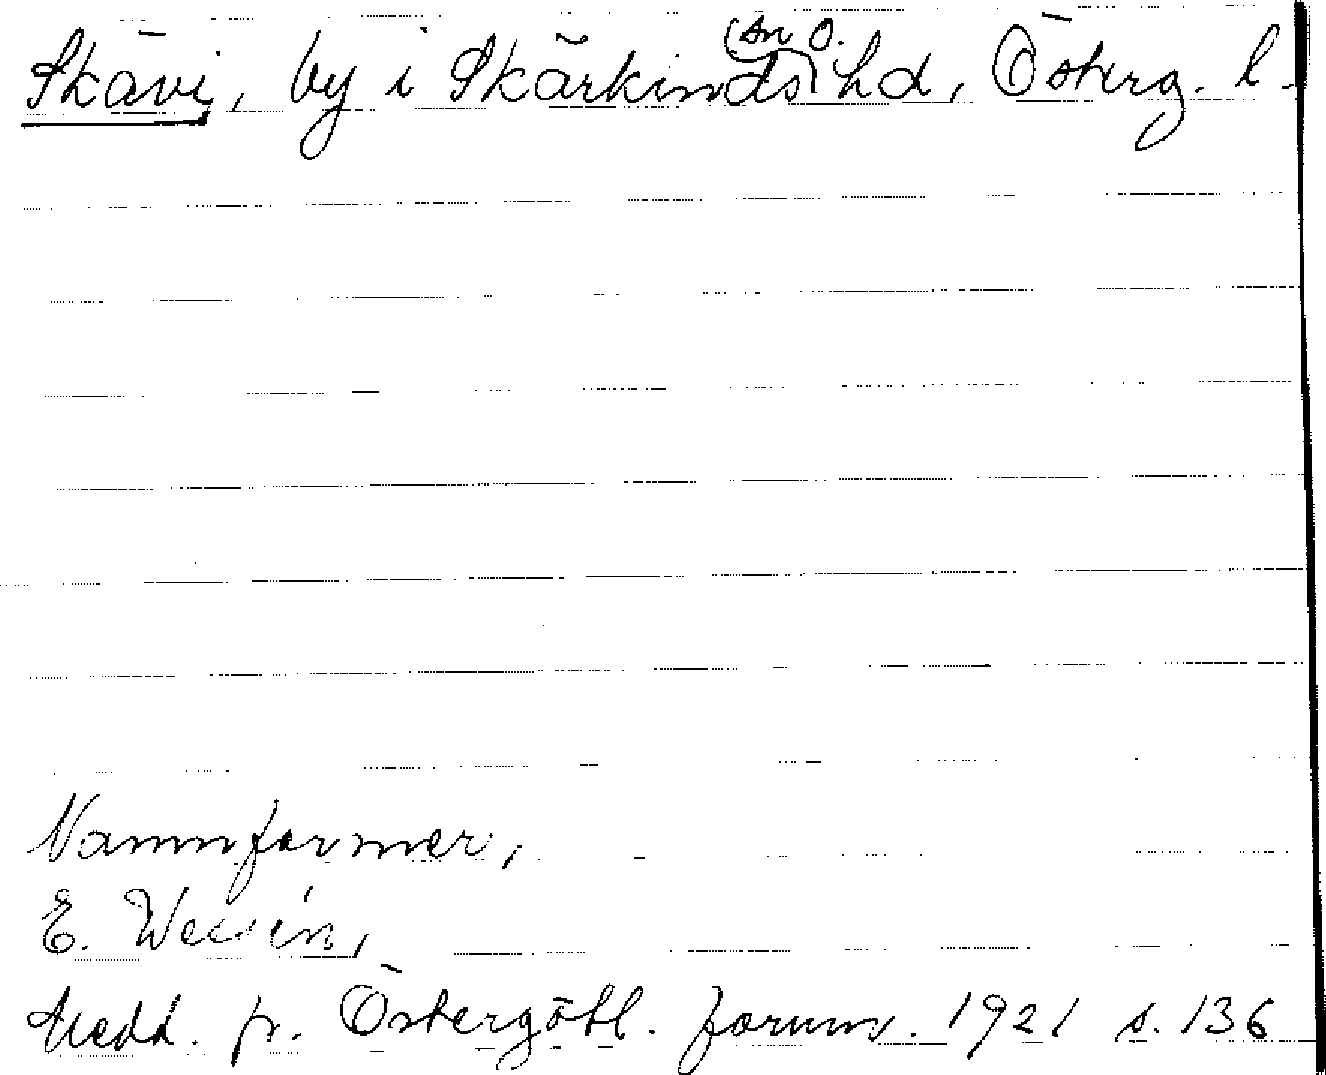 Skävi, by i Skärkinds (sn o.) hd, Österg. l
Namnformer,
E. Wessén,
Medd. fr. Östergötl. fornm. 1921 s. 136